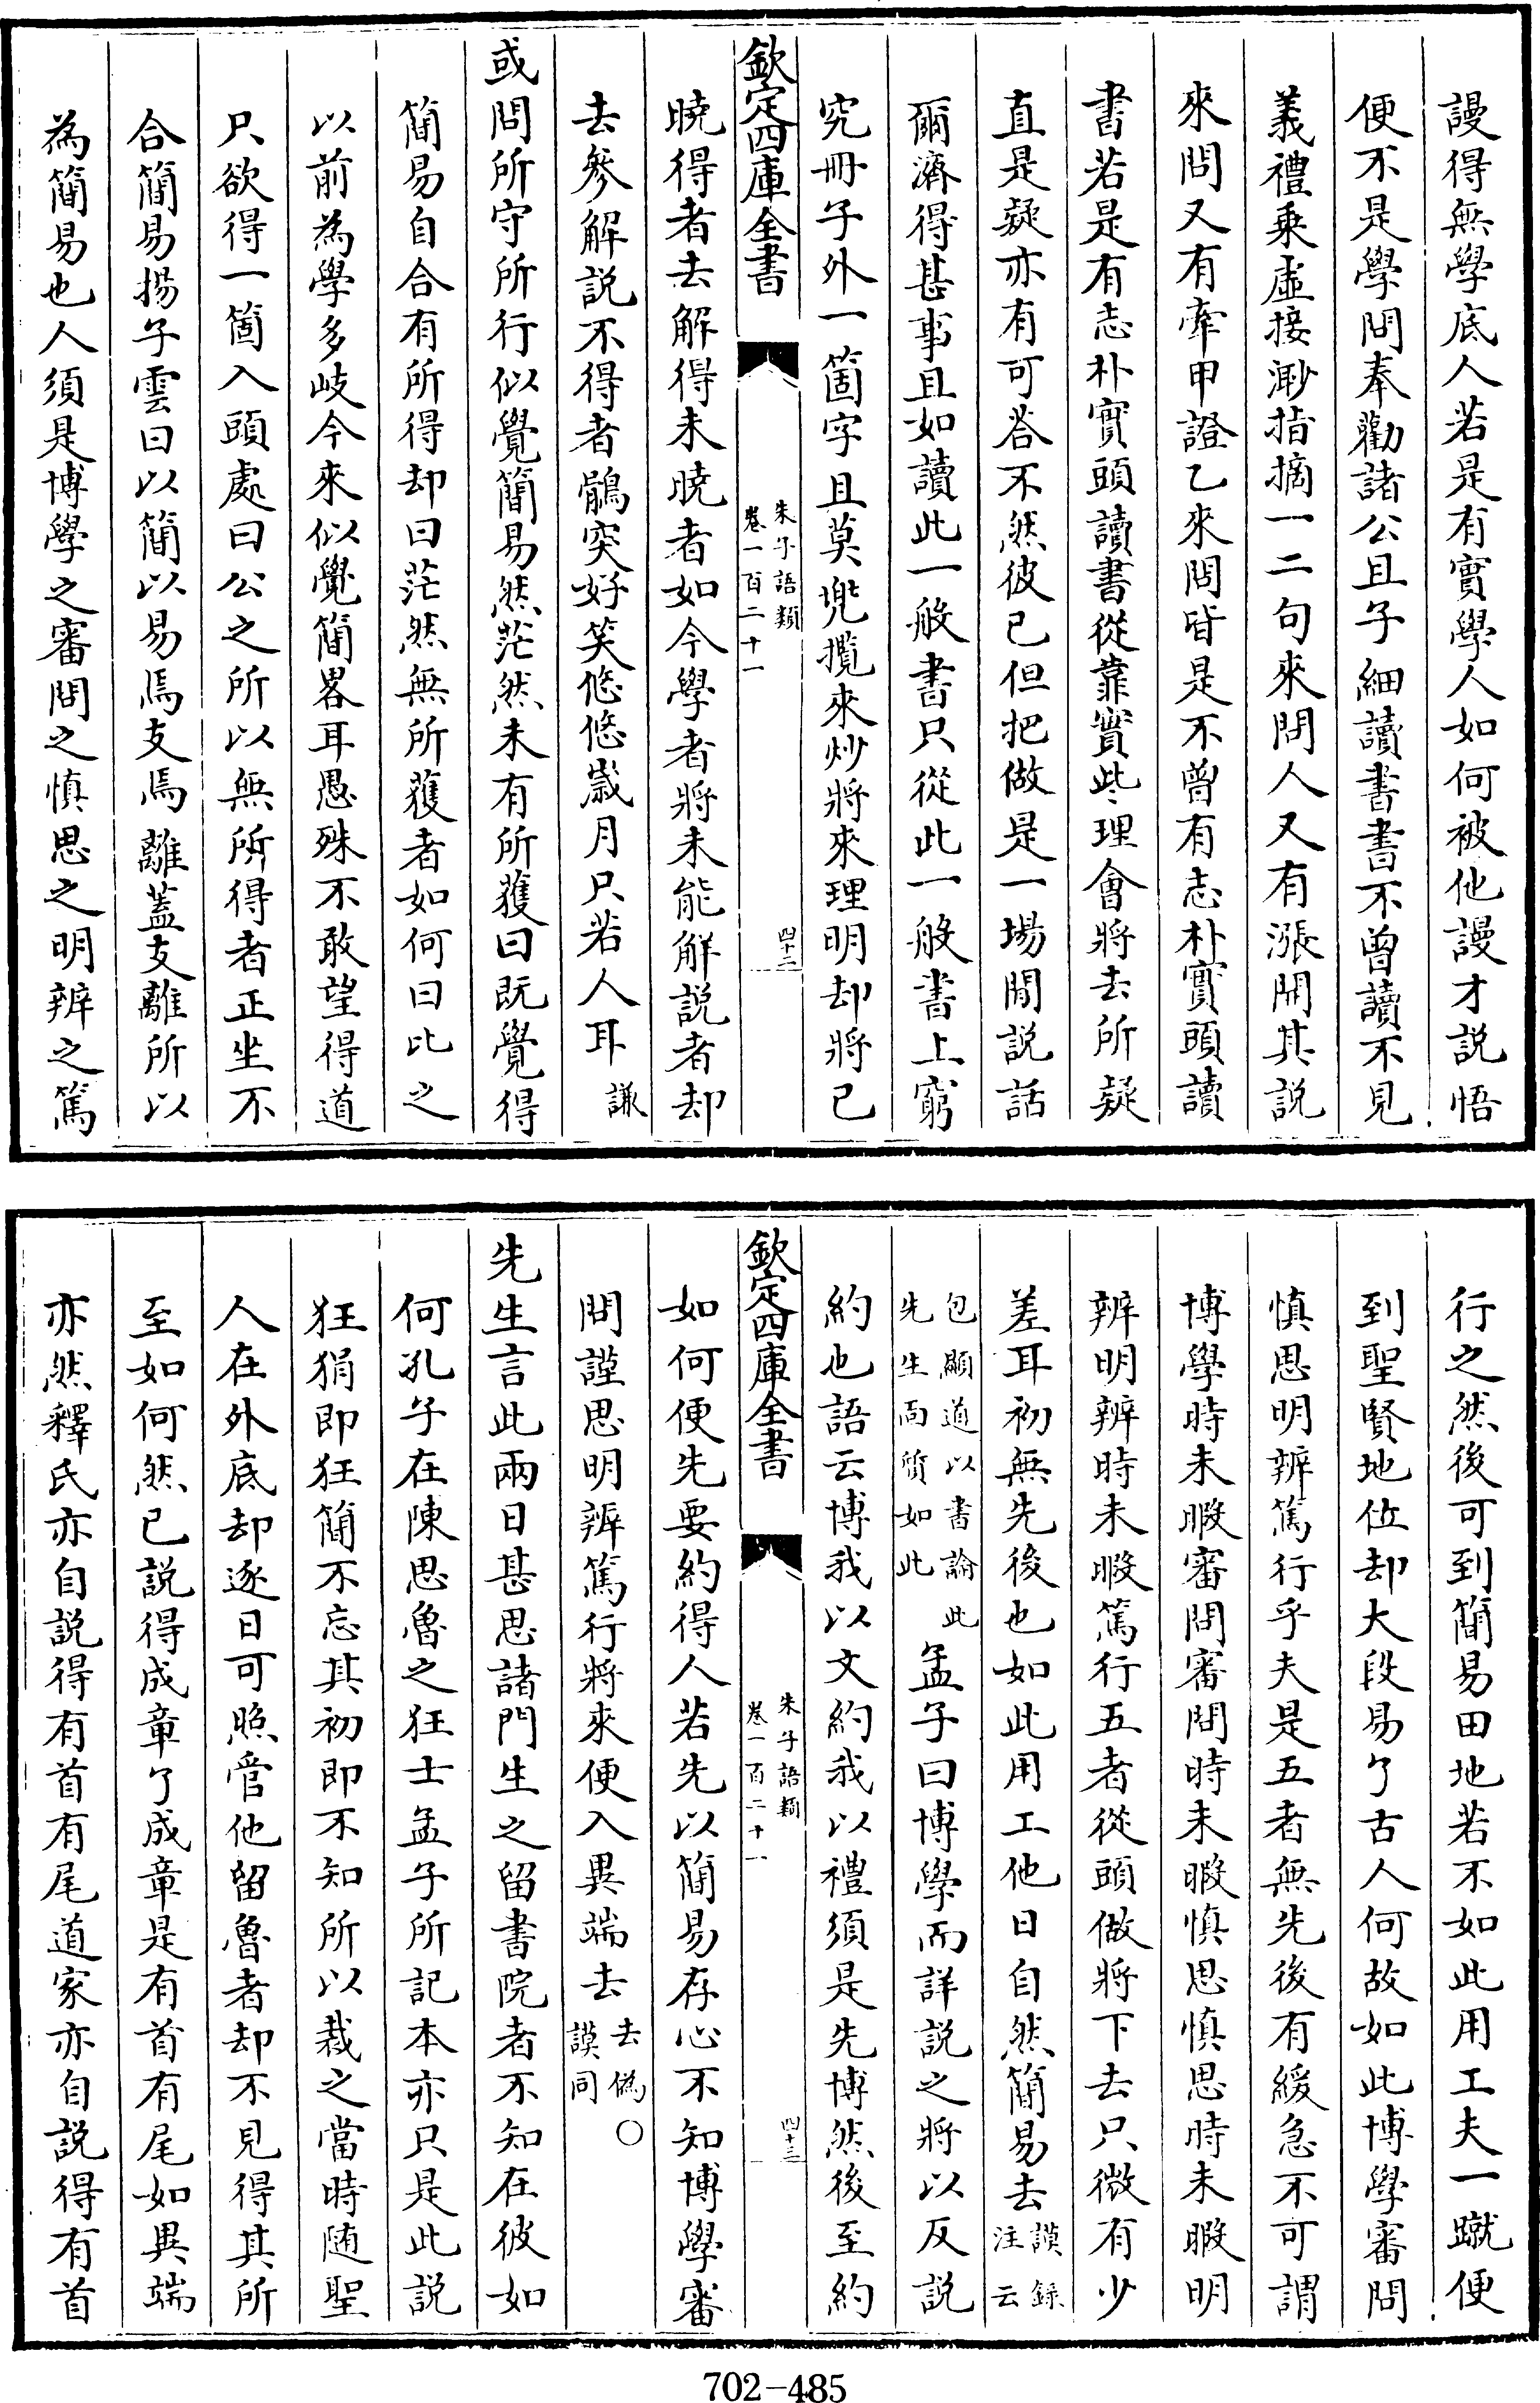 謾得無學底人若是有實學人如何被他謾才説悟
便不是學問奉勸諸公且子細讀書書不曾讀不見
義禮乗虚接渺指摘一二句來問人又有漲開其説
來問又有牽甲證乙來問皆是不曾有志朴實頭讀
書若是有志朴實頭讀書從靠實些理會將去所疑
直是疑亦有可荅不然彼已但把做是一場閒説話
爾濟得甚事且如讀此一般書只從此一般書上窮
究册子外一箇字且莫兠攬來炒將來理明却將已
欽定四庫全書
朱子語類
卷一百二十一
四十二
曉得者去解得未曉者如今學者將未能解説者却
去參解説不得者鶻突好笑悠悠歳月只若人耳謙
或問所守所行似覺簡易然茫然未有所獲曰既覺得
簡易自合有所得却曰茫然無所獲者如何曰比之
以前為學多歧今來似覺簡畧耳愚殊不敢望得道
只欲得一箇入頭處曰公之所以無所得者正坐不
合簡易揚子雲曰以簡以易焉支焉離蓋支離所以
為簡易也人須是博學之審問之慎思之明辨之篤
行之然後可到簡易田地若不如此用工夫一蹴便
到聖賢地位却大段易了古人何故如此博學審問
慎思明辨篤行乎夫是五者無先後有緩急不可謂
博學時未暇審問審問時未暇慎思慎思時未暇明
辨明辨時未暇篤行五者從頭做將下去只微有少
差耳初無先後也如此用工他日自然簡易去謨録
注云
包顯道以書論此
先生面質如此
孟子曰博學而詳説之將以反説
約也語云博我以文約我以禮須是先博然後至約
欽定四庫全書
朱子語類
卷一百二十一
四十三
如何便先要約得人若先以簡易存心不知博學審
問謹思明辨篤行將來便入異端去去偽○
謨同
先生言此兩日甚思諸門生之留書院者不知在彼如
何孔子在陳思魯之狂士孟子所記本亦只是此説
狂狷即狂簡不忘其初即不知所以裁之當時随聖
人在外底却逐日可照管他留魯者却不見得其所
至如何然已説得成章了成章是有首有尾如異端
亦然釋氏亦自説得有首有尾道家亦自説得有首
702-485